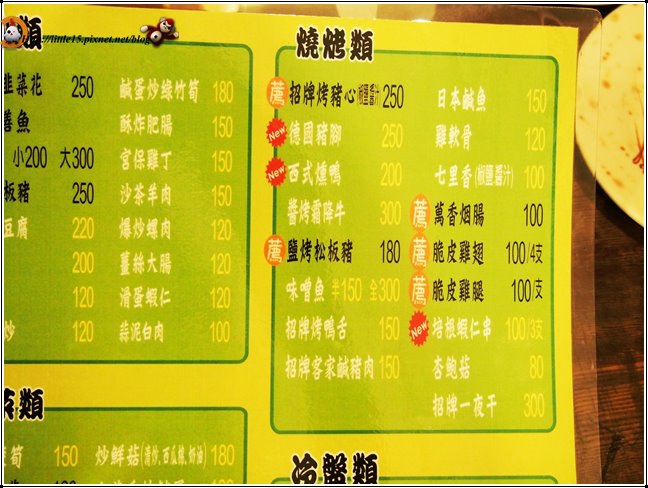 //little15.pixnet.net/blog
類
韭菜花 250
善魚
小200 大300
板豬 250
豆腐 220
200
120
炒 120
鹹蛋炒綠竹筍 180
酥炸肥腸 150
宮保雞丁 150
沙茶羊肉 150
爆炒螺肉 150
薑絲大腸 120
滑蛋蝦仁 120
蒜泥白肉 100
燒烤類
薦 招牌烤豬心(椒鹽 醬汁) 250
New 德國豬腳 200
New 西式燻鴨 200
醬烤霜降牛 300
薦 鹽烤松板豬 180
味噌魚 半150 全300
招牌烤鴨舌 150
招牌客家鹹豬肉 150
日本鹹魚 150
雞軟骨 120
七里香(椒鹽 醬汁) 100
薦 萬香烟腸 100
薦 脆皮雞翅 100/4支
薦 脆皮雞腿 100/支
New 培根蝦仁串 100/3支
杏鮑菇 80
招牌一夜干 300
類
筍 150
炒鮮菇(清炒,西瓜綿,奶油) 180
冷盤類